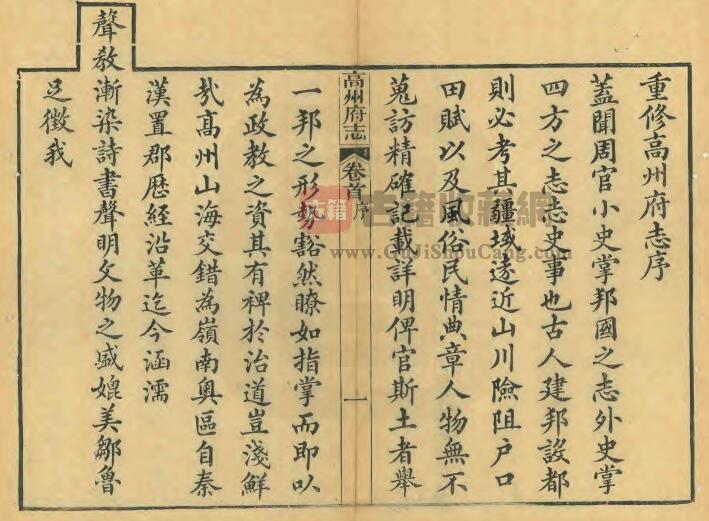 重修高州府志序
蓋聞周官小史掌邦國之志外史掌
四方之志志史事也古人建邦設都
則必考其疆域遂近山川險阻户口
田賦以及風俗民情典章人物無不
蒐訪精確記載詳明俾官斯土者舉
高州府志 卷首 序 一
一邦之形勢豁然瞭如指掌而即以
為政教之資其有裨於治道豈淺鮮
㢤高州山海交錯為嶺南奧區自秦
漢置郡歷經沿革迄今涵濡
聲教漸染詩書聲明文物之盛媲美鄒魯
足徵我
古籍 古籍收藏網
www.GuJiShouCang.com